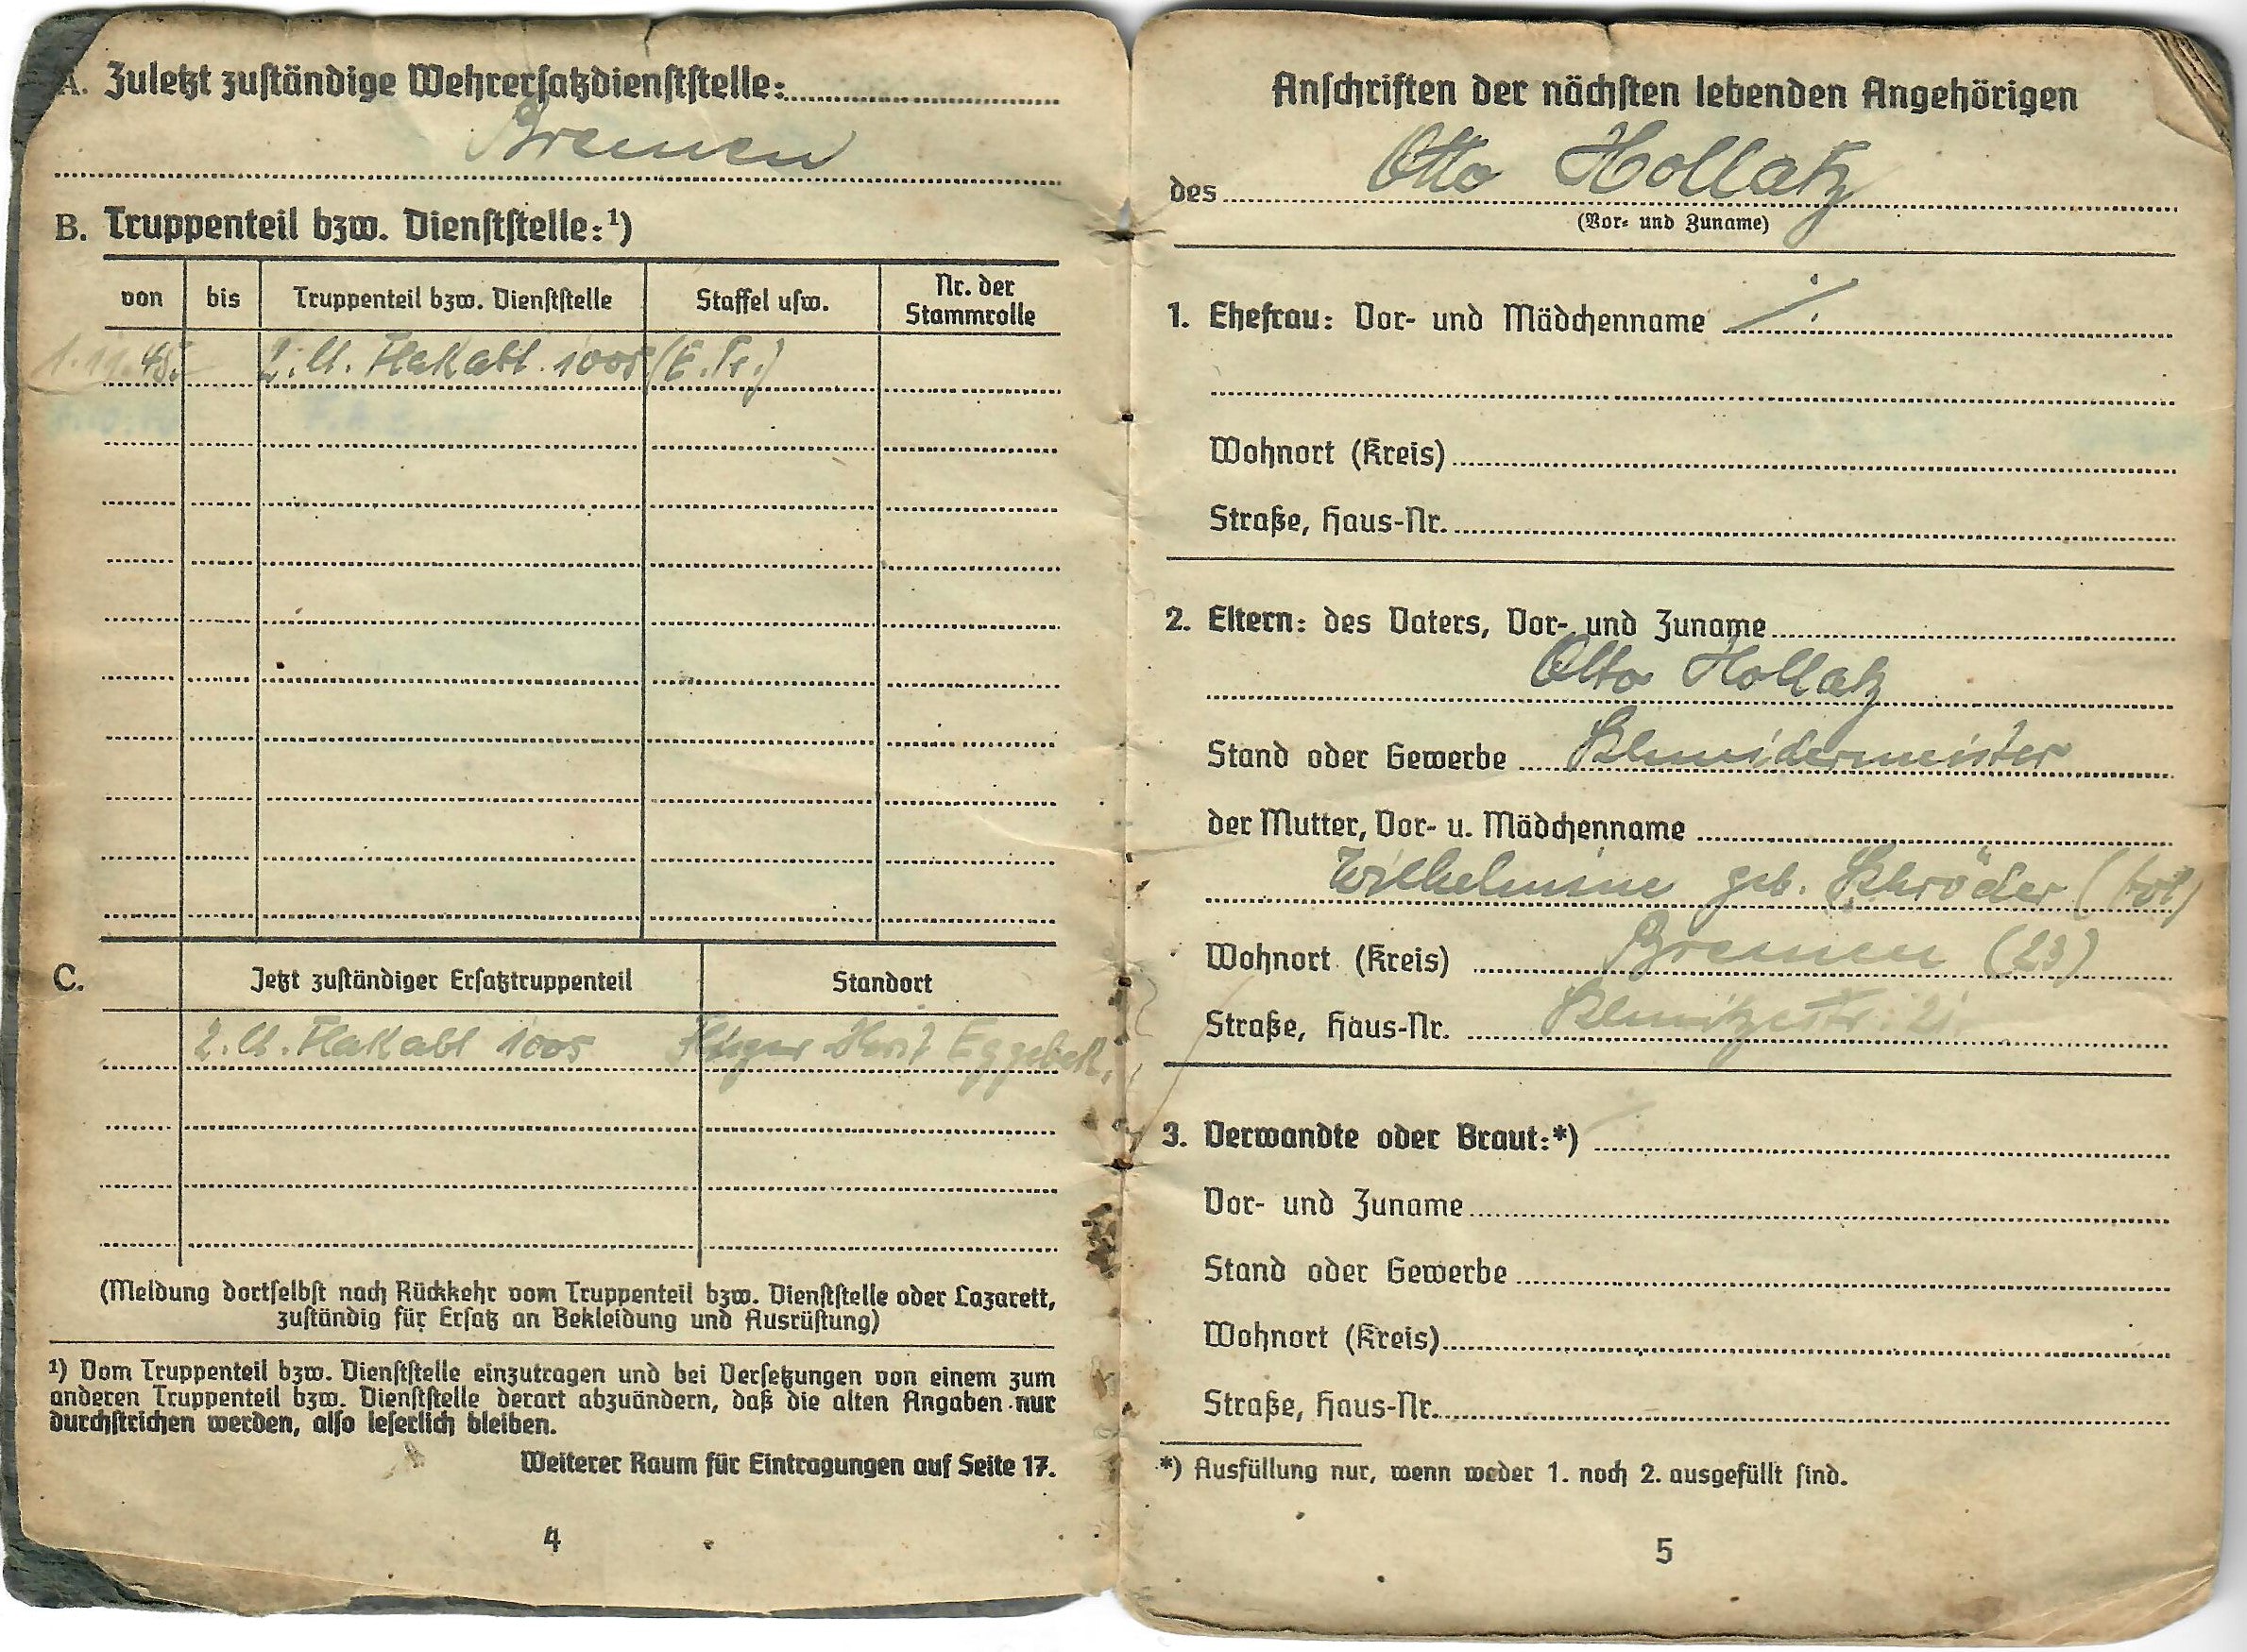 A. Zuletzt zuständige Wehrersatzdienststelle:
Bremen
B. Truppenteil bzw. Dienststelle:¹)
von bis Truppenteil bzw. Dienststelle Staffel usw. Nr. der Stammrolle
45. 2. U. Flakabt. 1005 (E.Tr.)
C. Jetzt zuständiger Ersatztruppenteil Standort
2. U. Flakabt 1005 Eggebek,
(Meldung dortselbst nach Rückkehr vom Truppenteil bzw. Dienststelle oder Lazarett,
zuständig für Ersatz an Bekleidung und Ausrüstung)
¹) Vom Truppenteil bzw. Dienststelle einzutragen und bei Versetzungen von einem zum
anderen Truppenteil bzw. Dienststelle derart abzuändern, daß die alten Angaben nur
durchstrichen werden, also leserlich bleiben.
Weiterer Raum für Eintragungen auf Seite 17.
4
Anschriften der nächsten lebenden Angehörigen
des Otto Hollatz
(Vor- und Zuname)
1. Ehefrau: Vor- und Mädchenname ./.
Wohnort (Kreis)
Straße, Haus-Nr.
2. Eltern: des Vaters, Vor- und Zuname
Otto Hollatz
Stand oder Gewerbe Schneidermeister
der Mutter, Vor- u. Mädchenname
Wilhelmine geb. Schröder (tot)
Wohnort (Kreis) Bremen (23)
Straße, Haus-Nr. 21
3. Verwandte oder Braut:*)
Vor- und Zuname
Stand oder Gewerbe
Wohnort (Kreis)
Straße, Haus-Nr.
*) Ausfüllung nur, wenn weder 1. noch 2. ausgefüllt sind.
5